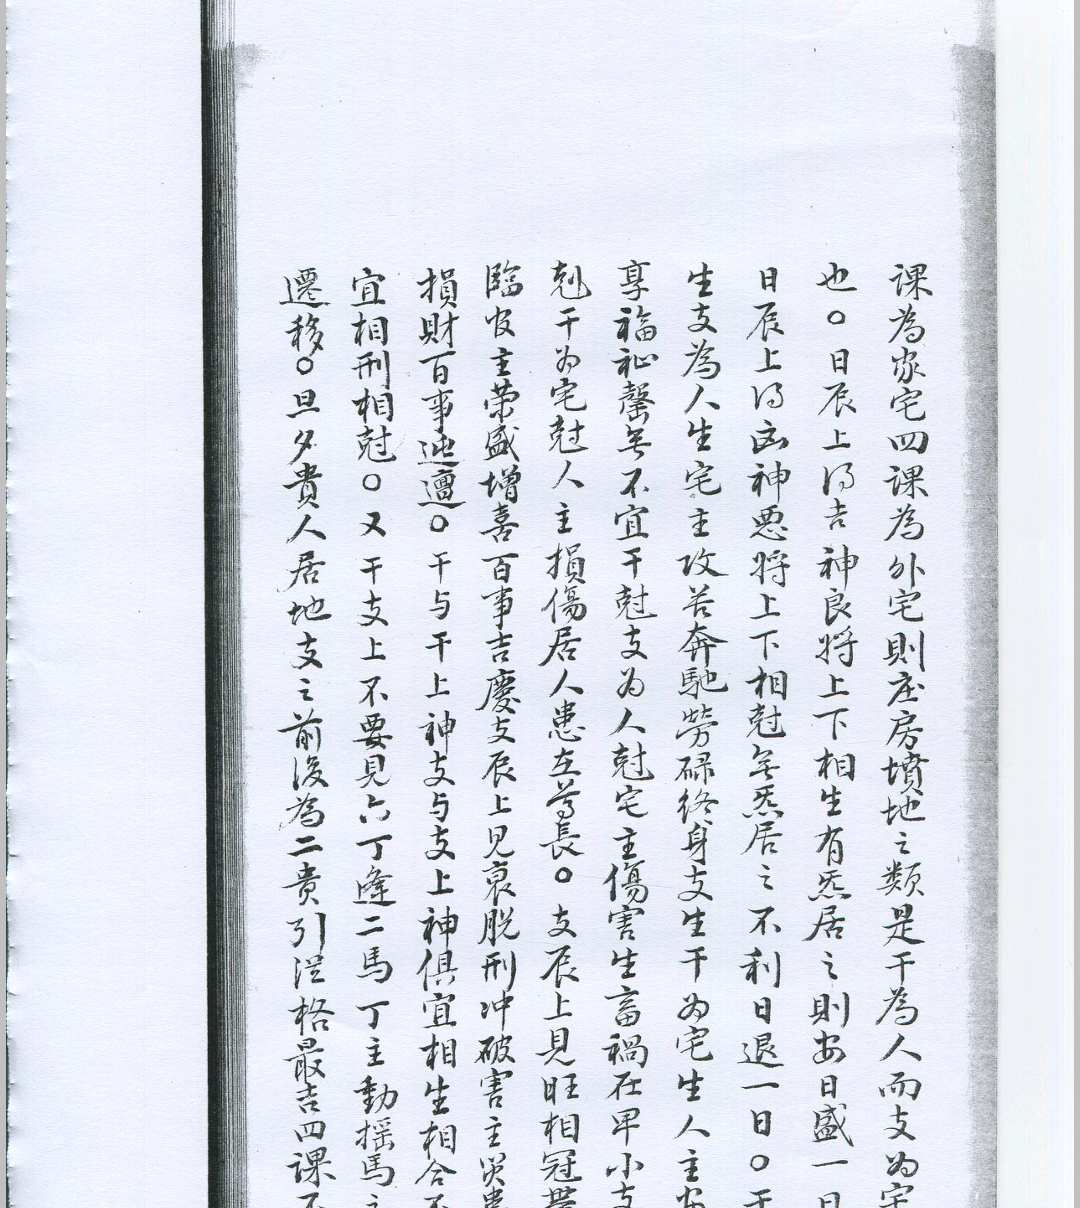 課為家宅四課為外宅則庄房墳地之類是干為人而支为宅
也○日辰上得吉神良将上下相生有炁居之則安日盛一日
日辰上得凶神悪将上下相尅无炁居之不利日退一日○干
生支為人生宅主攻苦奔馳勞碌终身支生干为宅生人主安
享福祉罄无不宜干尅支为人尅宅主傷害生畜禍在卑小支
剋干为宅尅人主損傷居人患在尊長○支辰上見旺相冠帶
臨官主荣盛增喜百事吉慶支辰上见衰脱刑冲破害主災患
損財百事迍邅○干与干上神支与支上神俱宜相生相合不
宜相刑相尅○又干支上不要見六丁逢二馬丁主動摇馬主
遷移○旦夕貴人居地支之前後為二贵引從格最吉四課不